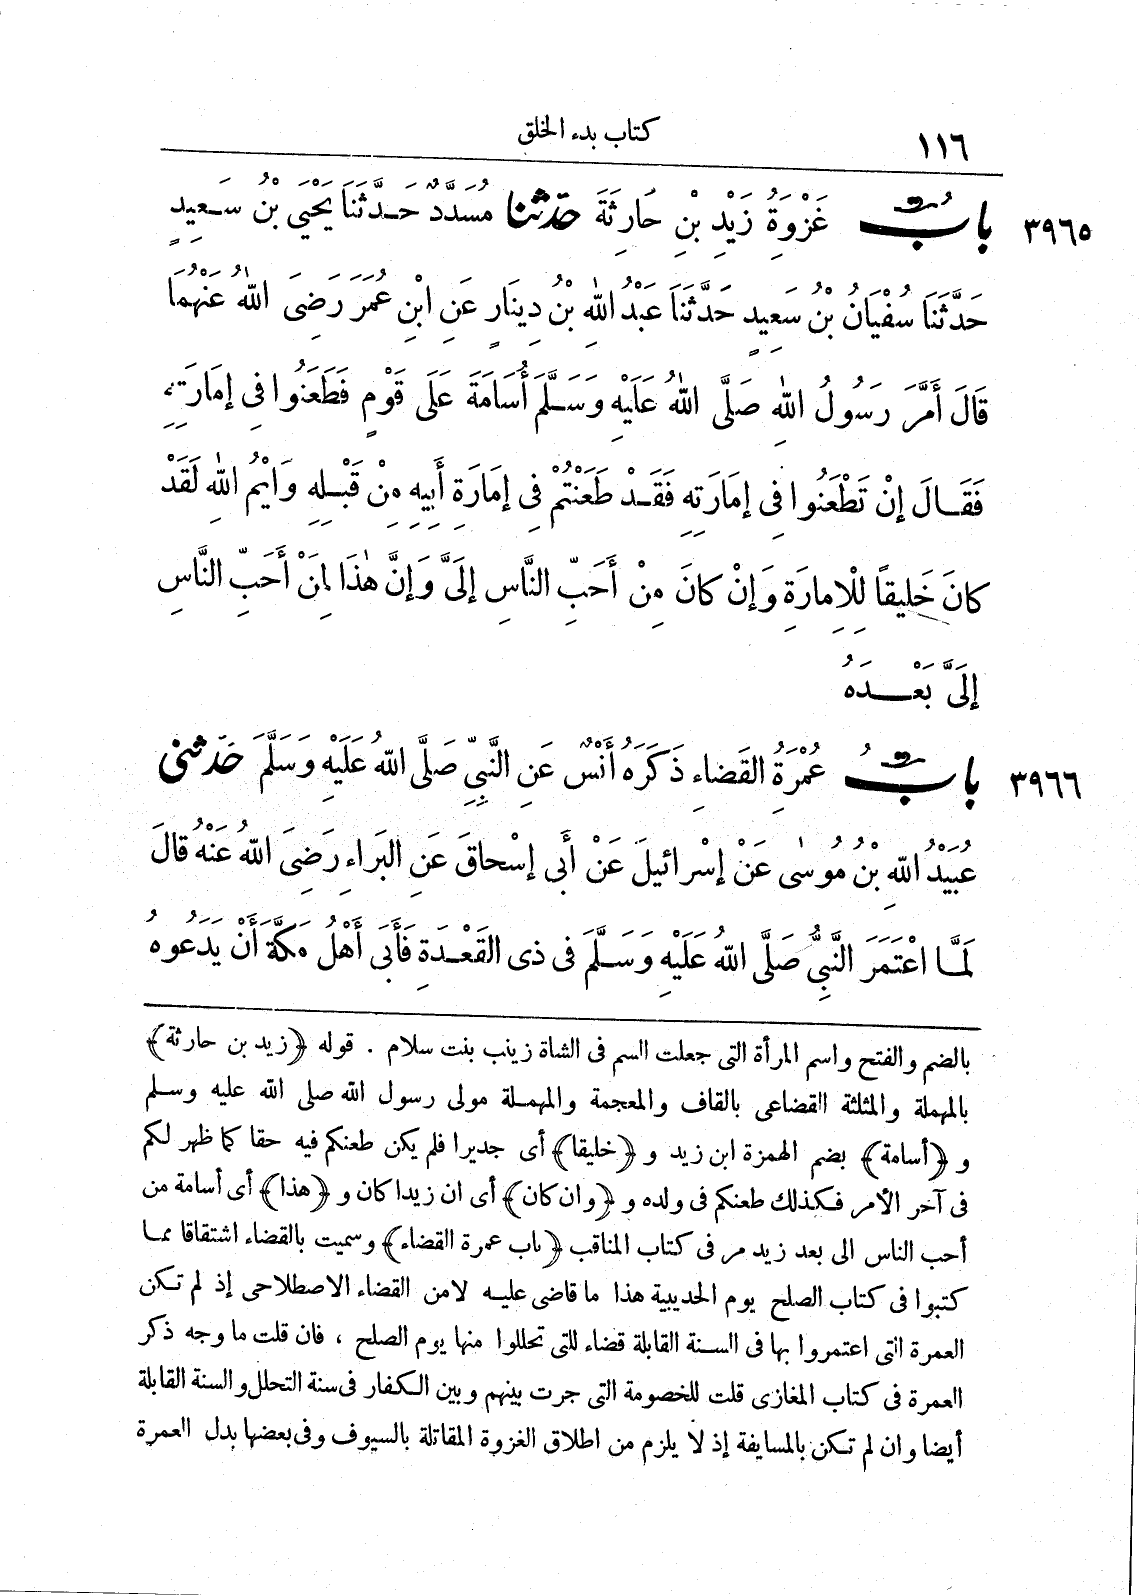 ١١٦ كتاب بدء الخلق
٣٩٦٥ بابُ غَزْوَةُ زَيْدِ بْنِ حَارِثَةَ حدّثنا مُسَدَّدٌ حَدَّثَنَا يَحْيَى بْنُ سَعِيدٍ
حَدَّثَنَا سُفْيَانُ بْنُ سَعِيدٍ حَدَّثَنَا عَبْدُ اللهِ بْنُ دِينَارٍ عَنِ ابْنِ عُمَرَ رَضِيَ اللهُ عَنْهُمَا
قَالَ أَمَّرَ رَسُولُ اللهِ صَلَّى اللهُ عَلَيْهِ وَسَلَّمَ أُسَامَةَ عَلَى قَوْمٍ فَطَعَنُوا فِى إِمَارَتِهِ
فَقَالَ إِنْ تَطْعَنُوا فِى إِمَارَتِهِ فَقَدْ طَعَنْتُمْ فِى إِمَارَةِ أَبِيهِ مِنْ قَبْلِهِ وَايْمُ اللهِ لَقَدْ
كانَ خَلِيقاً لِلْإِمارَةِ وَإِنْ كانَ مِنْ أَحَبِّ النَّاسِ إِلَىَّ وَإِنَّ هٰذَا لَمِنْ أَحَبِّ النَّاسِ
إِلَىَّ بَعْدَهُ
٣٩٦٦ بابُ عُمْرَةُ القَضاءِ ذَكَرَهُ أَنَسٌ عَنِ النَّبِيِّ صَلَّى اللهُ عَلَيْهِ وَسَلَّمَ حَدّثنى
عُبَيْدُ اللهِ بْنُ مُوسٰى عَنْ إِسْرائيلَ عَنْ أَبِى إِسْحاقَ عَنِ البَراءِ رَضِىَ اللهُ عَنْهُ قالَ
لَمَّا اعْتَمَرَ النَّبِيُّ صَلَّى اللهُ عَلَيْهِ وَسَلَّمَ فى ذى القَعْدَةِ فَأَبَى أَهْلُ مَكَّةَ أَنْ يَدَعُوهُ
بالضم والفتح واسم المرأة التى جعلت السم فى الشاة زينب بنت سلام . قوله ﴿زيد بن حارثة﴾
بالمهملة والمثلثة القضاعى بالقاف والمعجمة والمهملة مولى رسول الله صلى الله عليه وسلم
و ﴿أسامة﴾ بضم الهمزة ابن زيد و ﴿خليقا﴾ أى جديرا فلم يكن طعنكم فيه حقا كما ظهر لكم
فى آخر الأمر فكذلك طعنكم فى ولده و ﴿وان كان﴾ أى ان زيدا كان و ﴿هذا﴾ أى أسامة من
أحب الناس الى بعد زيد مر فى كتاب المناقب ﴿باب عمرة القضاء﴾ وسميت بالقضاء اشتقاقا مما
كتبوا فى كتاب الصلح يوم الحديبية هذا ما قاضى عليه لامن القضاء الاصطلاحى إذ لم تكن
العمرة التى اعتمروا بها فى السنة القابلة قضاء للتى تحللوا منها يوم الصلح ، فان قلت ما وجه ذكر
العمرة فى كتاب المغازى قلت للخصومة التى جرت بينهم وبين الكفار فى سنة التحلل والسنة القابلة
أيضا وان لم تكن بالمسايفة إذ لا يلزم من اطلاق الغزوة المقاتلة بالسيوف وفى بعضها بدل العمرة